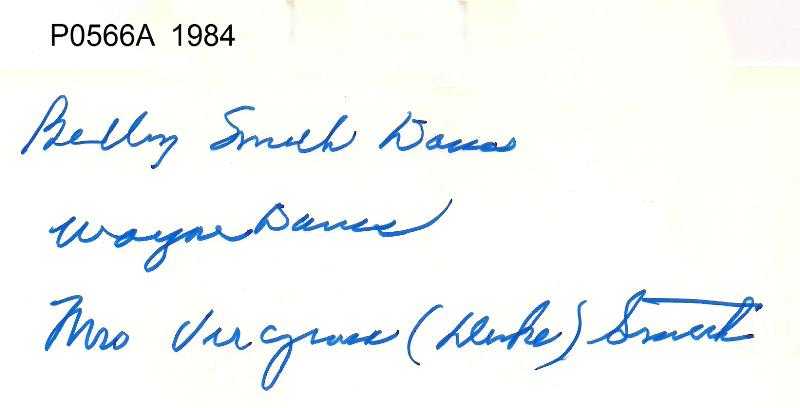 P0566A 1984
Betty Smith Davis
Wayne Davis
Mrs Virginia (Duke) Smith